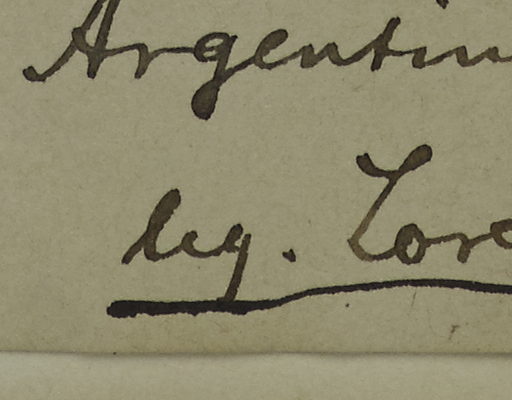 Argentin
leg. Lore